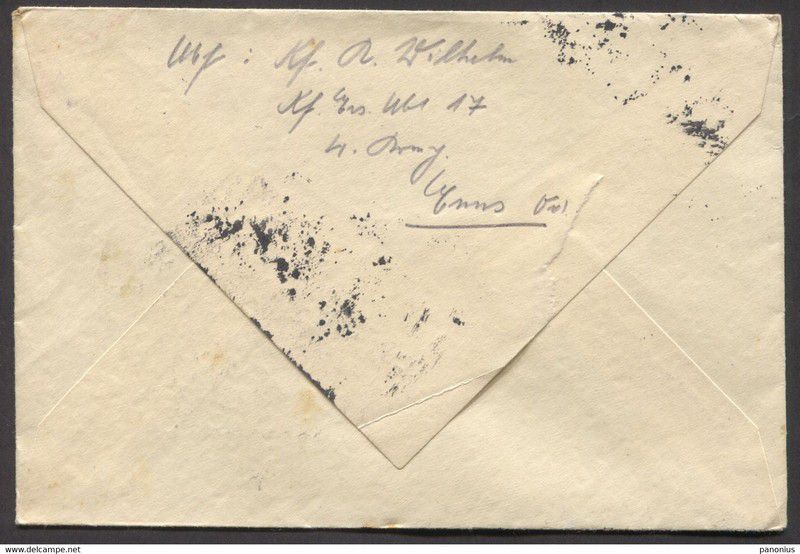 Abs : Kf. R. Wilhelm
Kf. Ers. Abt 17
Enns
www.delcampe.net
panonius